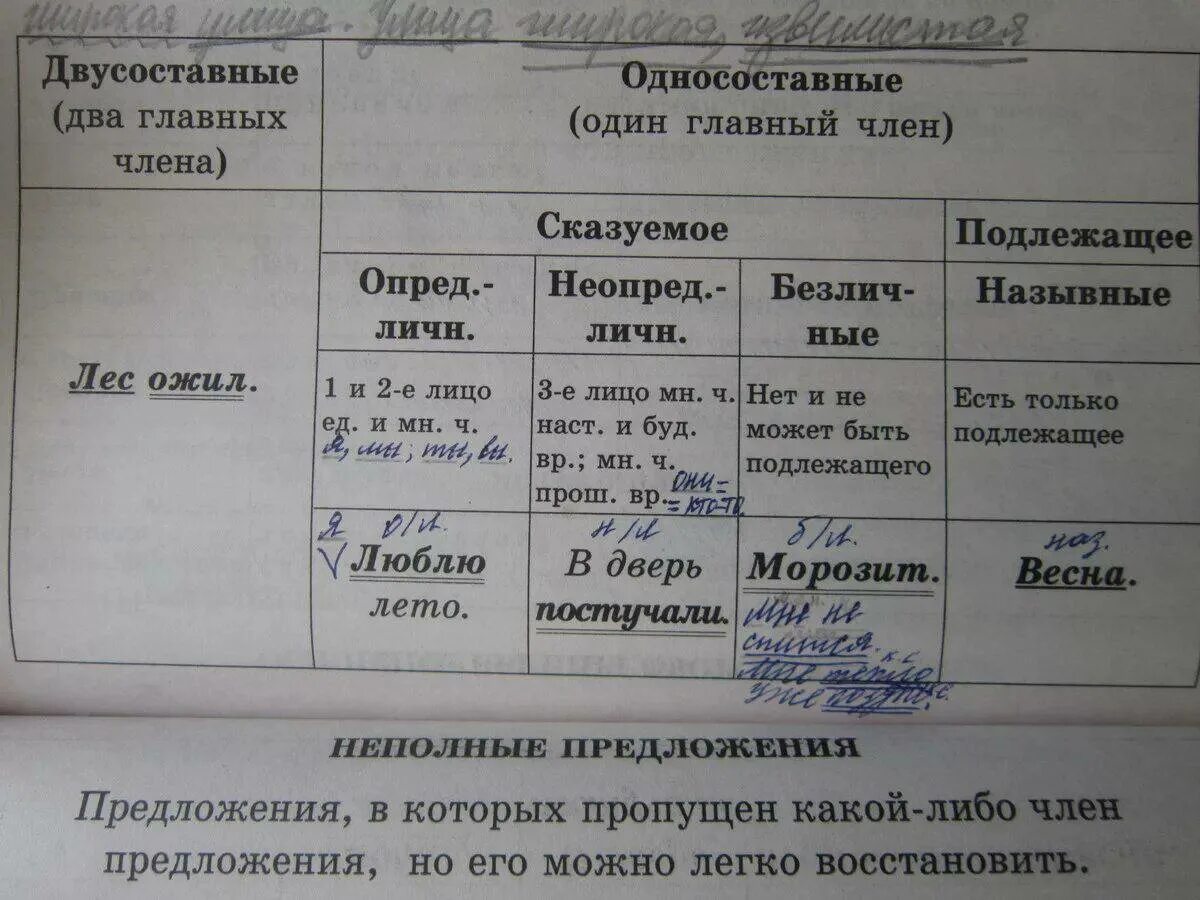 широкая улица. Улица широкая, извилистая
Двусоставные
(два главных
члена)
Односоставные
(один главный член)
Сказуемое
Подлежащее
Опред.-
личн.
Неопред.-
личн.
Безлич-
ные
Назывные
Лес ожил.
1 и 2-е лицо
ед. и мн. ч.
я, мы; ты, вы.
3-е лицо мн. ч.
наст. и буд.
вр.; мн. ч.
прош. вр. они=
=кто-то.
Нет и не
может быть
подлежащего
Есть только
подлежащее
я о/л.
Люблю
лето.
н/л
В дверь
постучали.
б/л.
Морозит.
Мне не
спится.
к.с.
Мне тепло
Уже поздно.
наз.
Весна.
НЕПОЛНЫЕ ПРЕДЛОЖЕНИЯ
Предложения, в которых пропущен какой-либо член
предложения, но его можно легко восстановить.